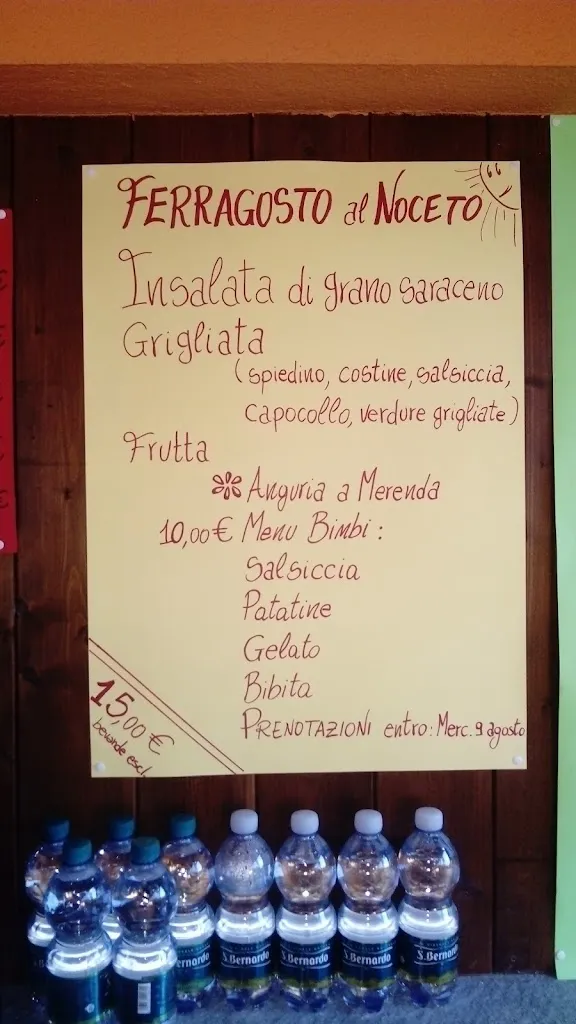 FERRAGOSTO al NOCETO
Insalata di grano saraceno
Grigliata
(spiedino, costine, salsiccia,
capocollo, verdure grigliate)
Frutta
Anguria a Merenda
10,00€ Menu Bimbi:
Salsiccia
Patatine
Gelato
Bibita
PRENOTAZIONI entro: Merc. 9 agosto
15,00 €
bevande escl.
S.Bernardo
S.Bernardo
S.Bernardo
S.Bernardo